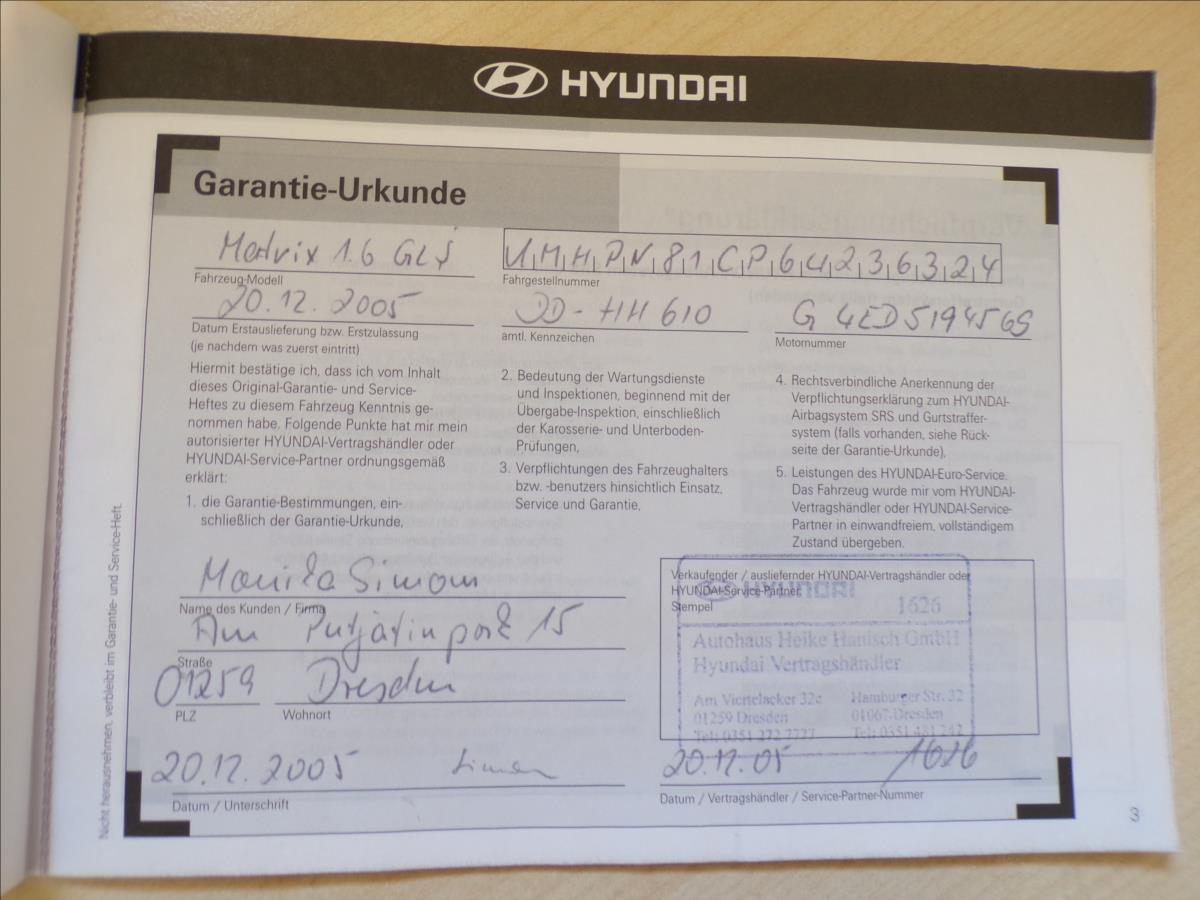 HYUNDAI
Garantie-Urkunde
Matrix 1.6 GLS
Fahrzeug-Modell
20.12.2005
Datum Erstauslieferung bzw. Erstzulassung
(je nachdem was zuerst eintritt)
KMHPN81CP6U236324
Fahrgestellnummer
DD-HH 610
amtl. Kennzeichen
G4ED5194565
Motornummer
Hiermit bestätige ich, dass ich vom Inhalt
dieses Original-Garantie- und Service-
Heftes zu diesem Fahrzeug Kenntnis ge-
nommen habe. Folgende Punkte hat mir mein
autorisierter HYUNDAI-Vertragshändler oder
HYUNDAI-Service-Partner ordnungsgemäß
erklärt:
1. die Garantie-Bestimmungen, ein-
schließlich der Garantie-Urkunde,
2. Bedeutung der Wartungsdienste
und Inspektionen, beginnend mit der
Übergabe-Inspektion, einschließlich
der Karosserie- und Unterboden-
Prüfungen,
3. Verpflichtungen des Fahrzeughalters
bzw. -benutzers hinsichtlich Einsatz,
Service und Garantie,
4. Rechtsverbindliche Anerkennung der
Verpflichtungserklärung zum HYUNDAI-
Airbagsystem SRS und Gurtstraffer-
system (falls vorhanden, siehe Rück-
seite der Garantie-Urkunde).
5. Leistungen des HYUNDAI-Euro-Service.
Das Fahrzeug wurde mir vom HYUNDAI-
Vertragshändler oder HYUNDAI-Service-
Partner in einwandfreiem, vollständigem
Zustand übergeben.
Monika Simon
Name des Kunden / Firma
Am Putjatinpark 15
Straße
01259 Dresden
PLZ Wohnort
20.12.2005 Simon
Datum / Unterschrift
Verkaufender / ausliefernder HYUNDAI-Vertragshändler oder
HYUNDAI-Service-Partner
Stempel
HYUNDAI
1626
Autohaus Heike Hanisch GmbH
Hyundai Vertragshändler
Am Viertelacker 32c Hamburger Str. 32
01259 Dresden 01067 Dresden
Tel: 0351 272 7777 Tel: 0351 481 242
20.12.05 1626
Datum / Vertragshändler / Service-Partner-Nummer
Nicht herausnehmen, verbleibt im Garantie- und Service-Heft.
3